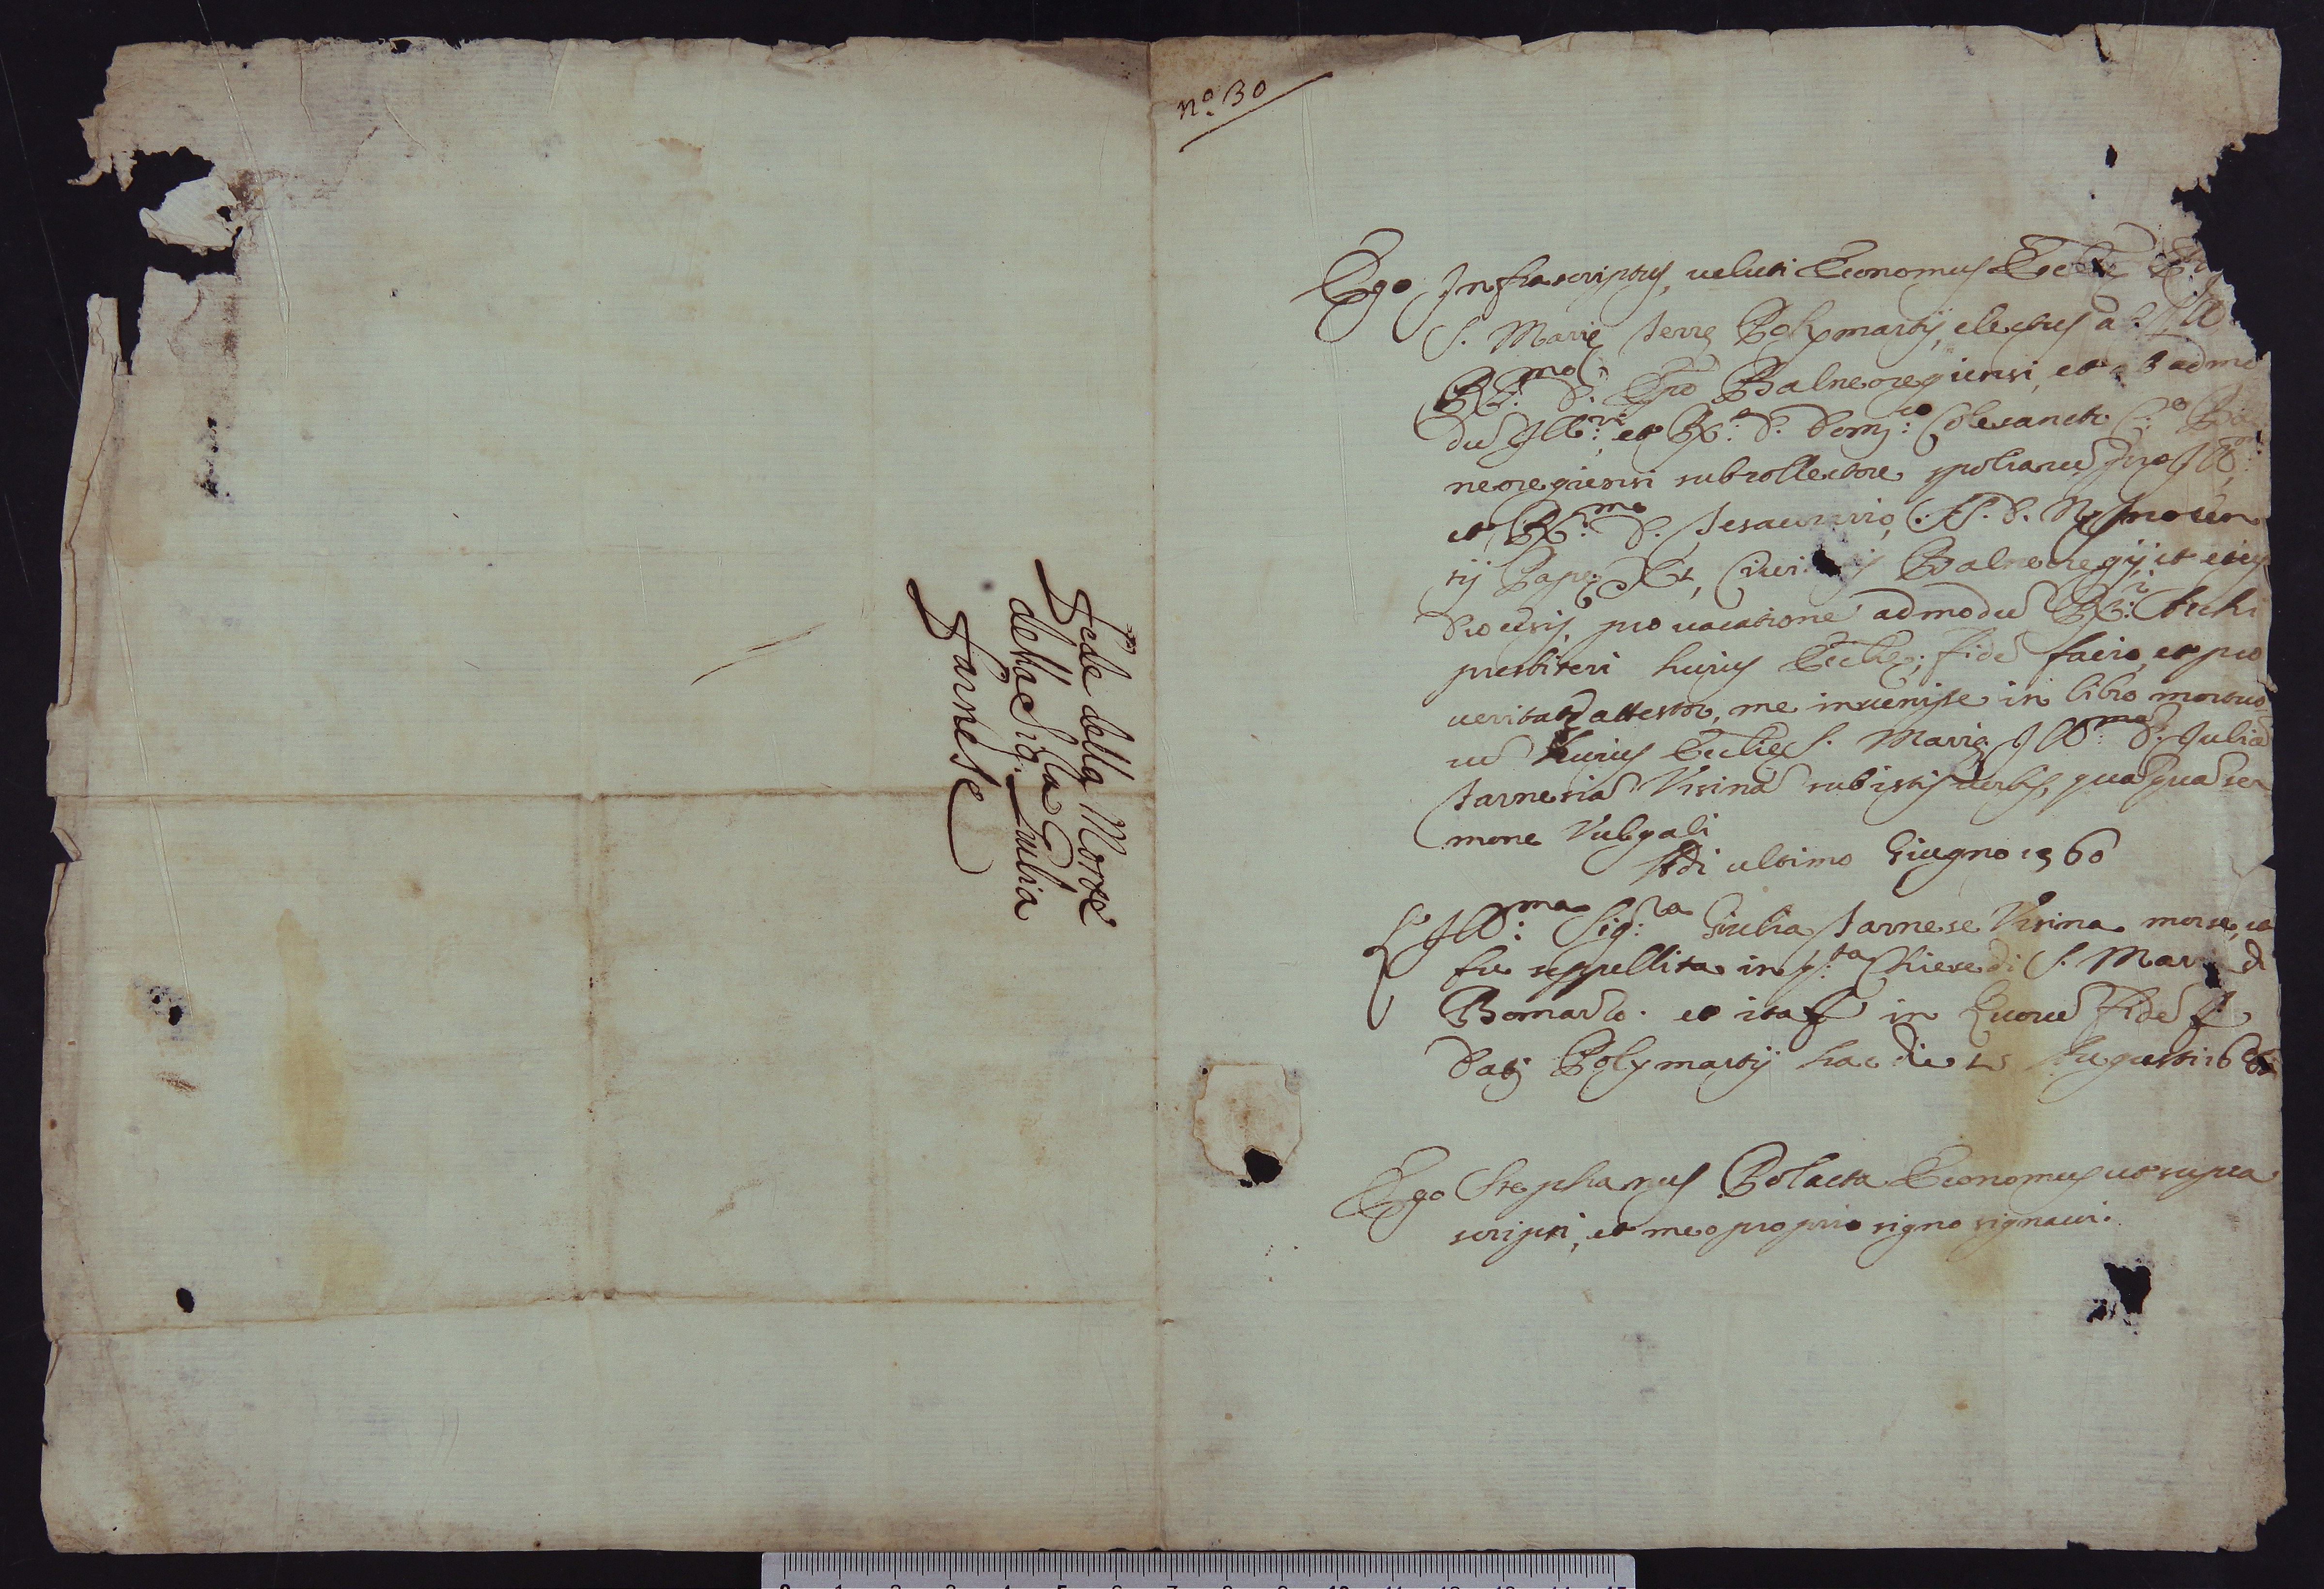 Fede della Morte
della Sig.ra Giulia
Farnese
nº 30
Ego Infrascriptus, veluti Economus Eccłe
S. Marię terrę Polymartij, electus ab Ill
R.mo D. Epõ Balneoregiensi, et ab admo
dũ Ill.ri, et R.do D. Domi.co Colesancte C.o Bal
neoregiensi subcollectore spoliorũ pro Ill.mo
et R.mo D. Tesaurario, S. D. N. Innocen
tij Papę XI, Civi is Balneoregij, et eius
Diocesis, pro vacatione admodũ R.di Archi
presbiteri huius Ecclię; fidẽ facio, et pro
veritate attestor, me invenisse in libro mortuo
rũ huius Ecclię S. Marię Ill.mã D. Juliã
Farnesiã Ursinã sub istis verbis, quãquã ser
mone Vulgali
Adi ultimo Giugno 1560
L'Ill.ma Sig.ra Giulia Farnese Ursina morse, et
fu seppellita in q.ta Chiesa di S. Mar di
Bomarzo. et ita est in Quorũ fidẽ
Datũ Polymartij hac die 25 Augusti 168
Ego Stephanus Polacta Economus ut supra
scripsi, et meo proprio signo signavi.